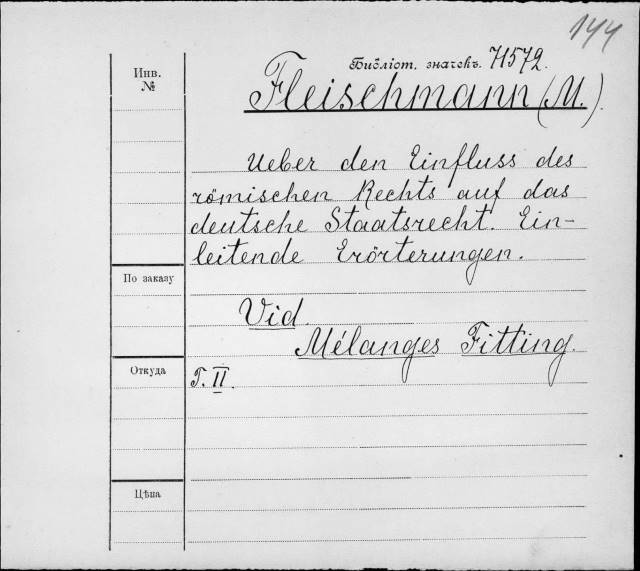 144
Библіот. значекъ. 71572.
Инв.
№
Fleischmann (M.)
Ueber den Einfluss des
römischen Rechts auf das
deutsche Staatsrecht. Ein-
leitende Erörterungen.
По заказу
Vid.
Mélanges Fitting.
Откуда
T. II.
Цѣна